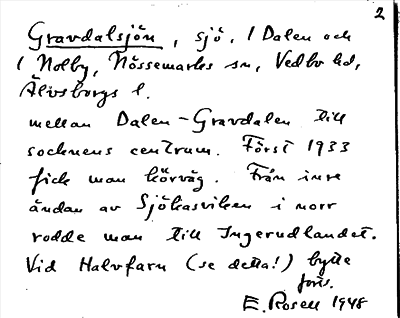 2
Gravdalsjön, sjö, 1 Dalen och
1 Nolby, Nössemarks sn, Vedbo hd,
Älvsborgs l.
mellan Dalen-Gravdalen till
socknens centrum. Först 1933
fick man körväg. Från inre
ändan av Sjökasviken i norr
rodde man till Ingerudlandet.
Vid Halvfarn (se detta!) bytte
fors.
E. Rosell 1948